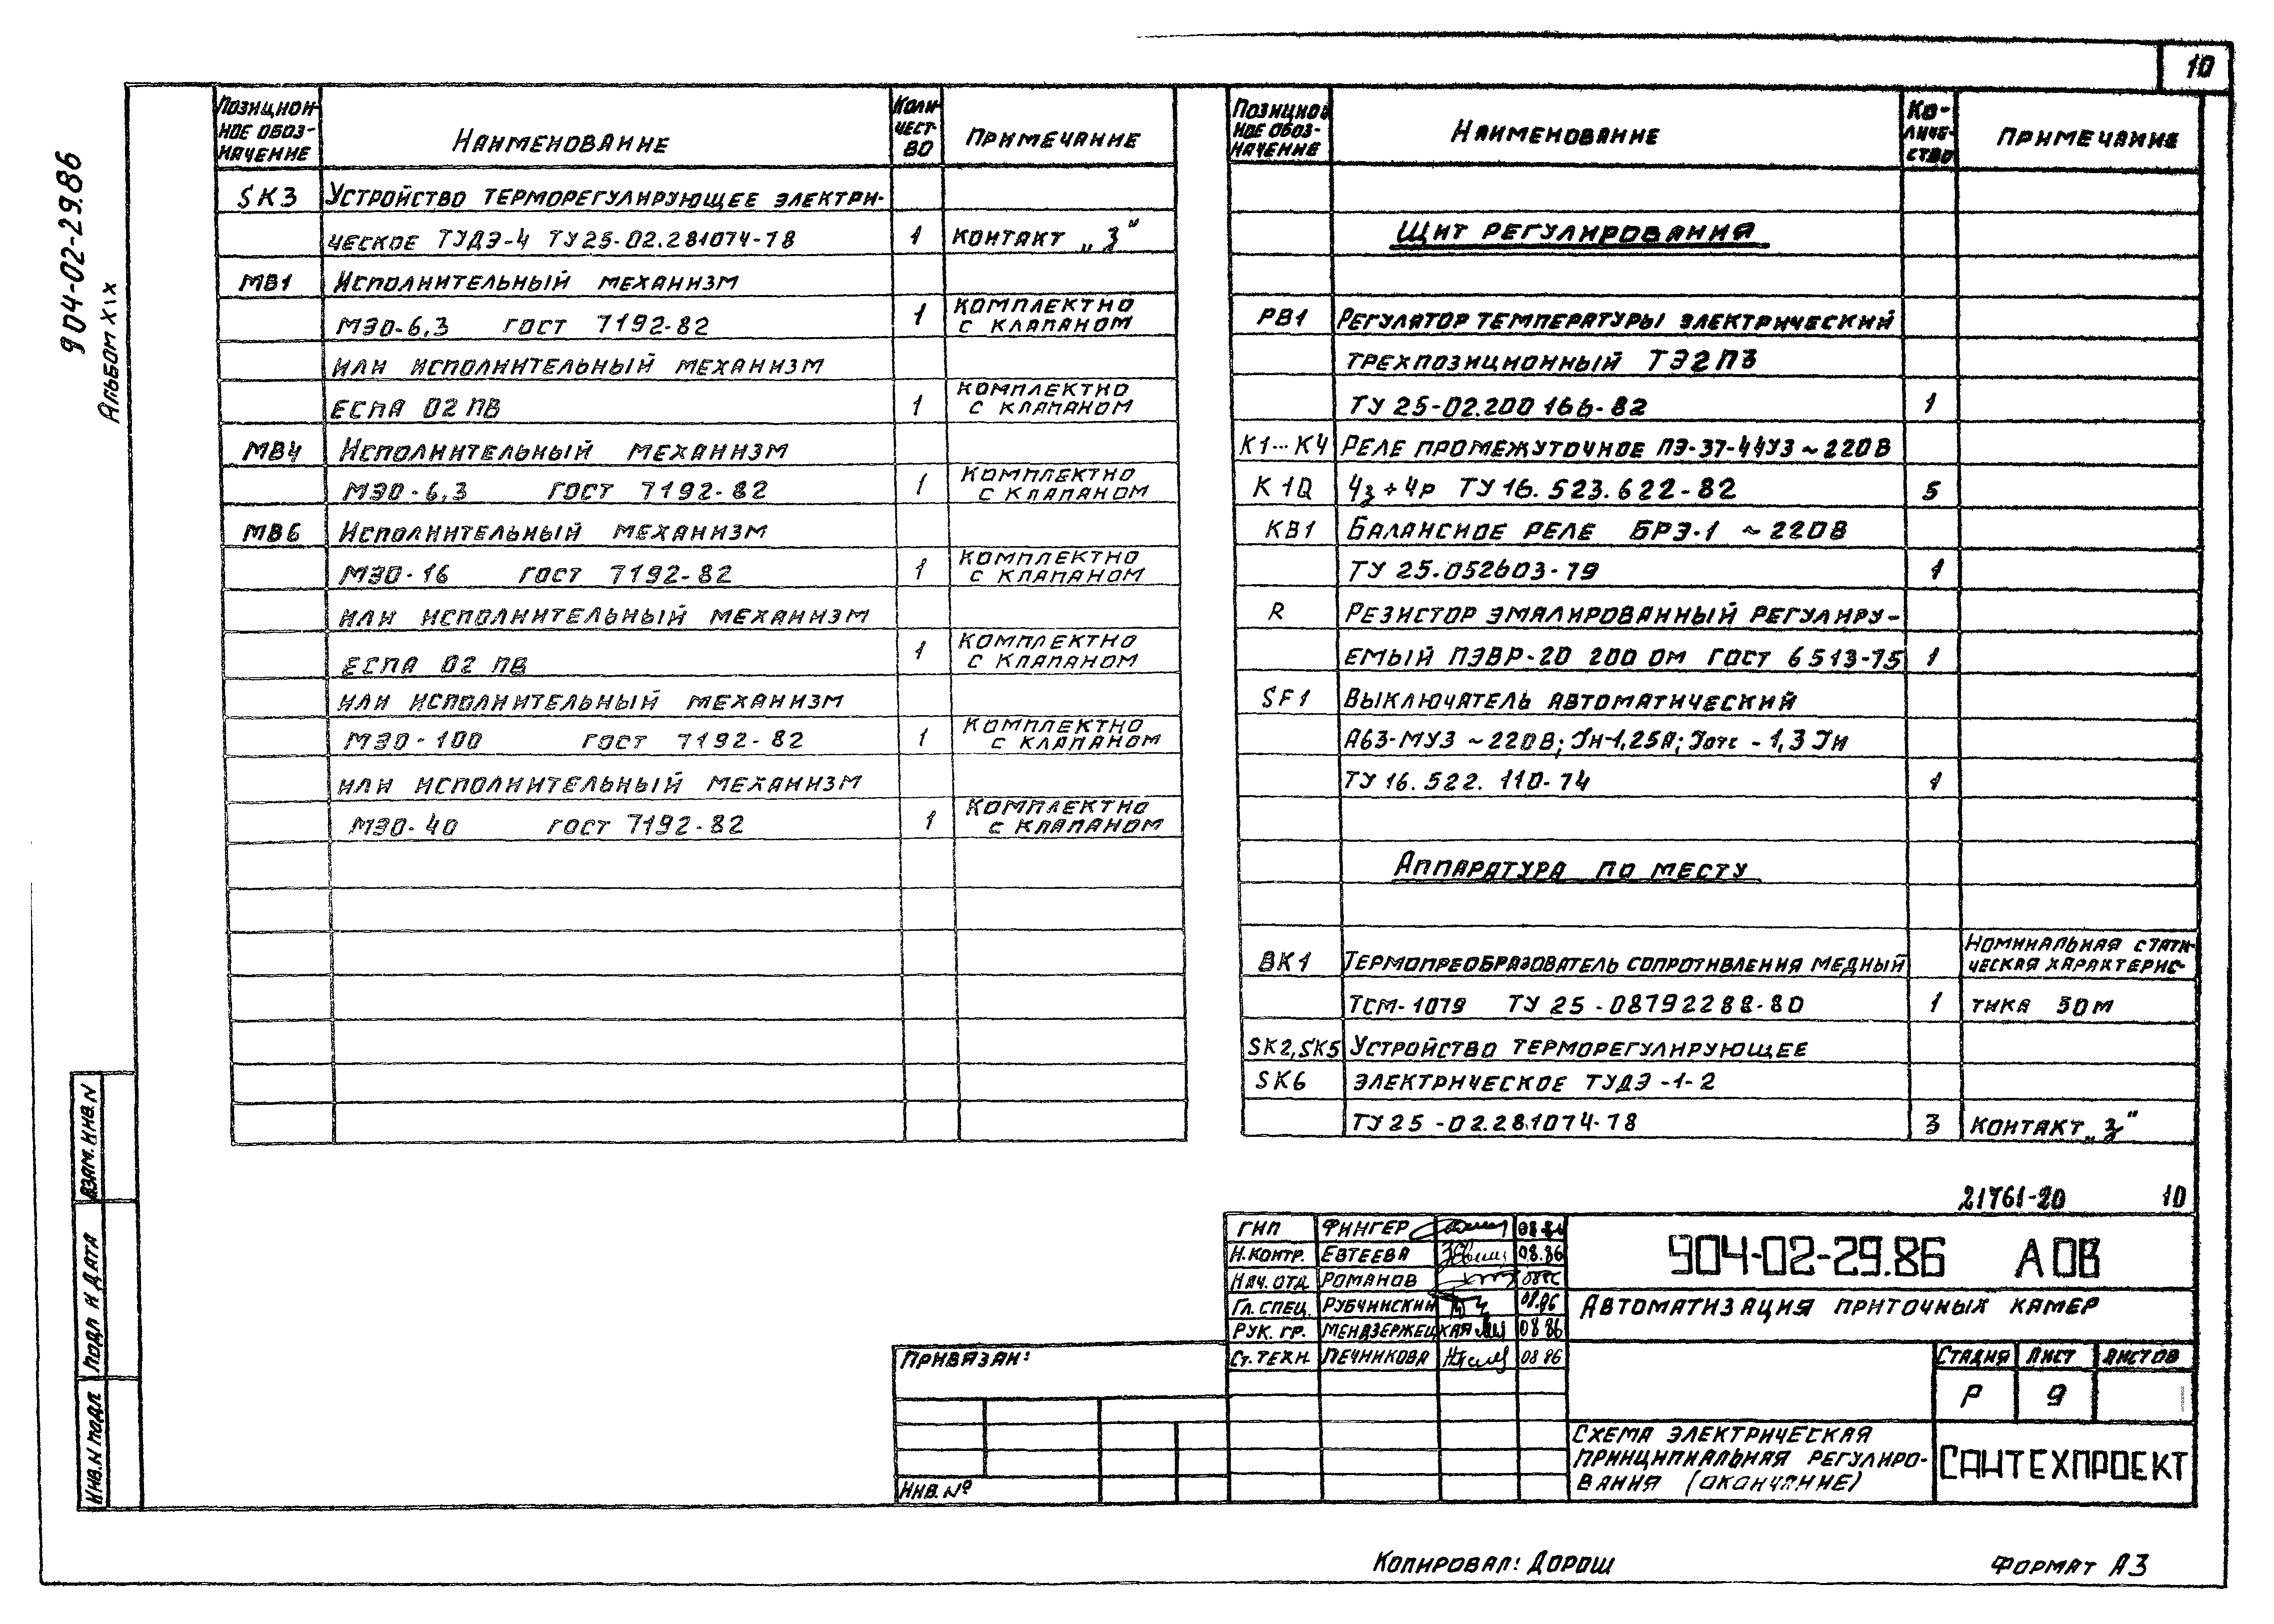 10
904-02-29.86
Альбом XIX
Позицион-
ное обоз-
начение
Наименование
Коли-
чест-
во
Примечание
SK3 Устройство терморегулирующее электри-
ческое ТУДЭ-4 ТУ25-02.281074-78 1 контакт „З"
МВ1 Исполнительный механизм
МЭО-6,3 ГОСТ 7192-82 1 комплектно
с клапаном
или исполнительный механизм
ЕСПА 02 ПВ 1 комплектно
с клапаном
МВ4 Исполнительный механизм
МЭО-6,3 ГОСТ 7192-82 1 комплектно
с клапаном
МВ6 Исполнительный механизм
МЭО-16 ГОСТ 7192-82 1 комплектно
с клапаном
или исполнительный механизм
ЕСПА 02 ПВ 1 комплектно
с клапаном
или исполнительный механизм
МЭО-100 ГОСТ 7192-82 1 комплектно
с клапаном
или исполнительный механизм
МЭО-40 ГОСТ 7192-82 1 комплектно
с клапаном
Позицион
ное обоз-
начение
Наименование
Ко-
личе-
ство
Примечание
Щит регулирования
РВ1 Регулятор температуры электрический
трехпозиционный ТЭ2П3
ТУ 25-02.200 166-82 1
К1...К4 Реле промежуточное ПЭ-37-44У3 ~220В
К1Q 4з+4р ТУ 16.523.622-82 5
КВ1 Балансное реле БРЭ-1 ~220В
ТУ 25.052603-79 1
R Резистор эмалированный регулиру-
емый ПЭВР-20 200 Ом ГОСТ 6513-75 1
SF1 Выключатель автоматический
А63-МУ3 ~220В; Iн-1,25А; Iотс - 1,3 Iн
ТУ 16.522.110-74 1
Аппаратура по месту
ВК1 Термопреобразователь сопротивления медный Номинальная стати-
ческая характерис-
ТСМ-1079 ТУ 25-08792288-80 1 тика 50м
SK2, SK5 Устройство терморегулирующее
SK6 электрическое ТУДЭ-1-2
ТУ25-02.281074-78 3 контакт „З"
21761-20 10
ГИП Фингер 08.86
Н.контр. Евтеева 08.86
Нач. отд. Романов
Гл. спец. Рубчинский 08.86
Рук. гр. Мендзержецкая 08 86
Ст. техн. Печникова 08 86
904-02-29.86 АОВ
Автоматизация приточных камер
Стадия Лист Листов
Р 9
Схема электрическая
принципиальная регулиро-
вания (окончание)
САНТЕХПРОЕКТ
Привязан:
Инв. №
Взам. инв. N
Подп и дата
Инв. N подл
Копировал: Дорош
Формат А3